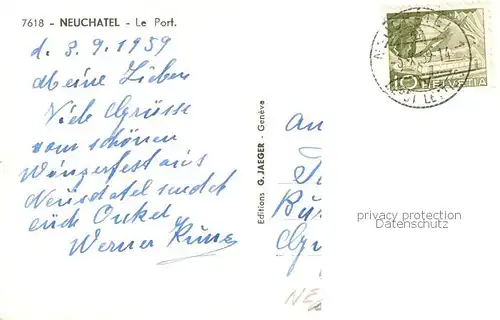 7618 - NEUCHATEL - Le Port.
d. 3. 9. 1959
Meine Lieben
Viele Grüsse
vom schönen
Winzerfest aus
Neusdatel sendet
euch Onkel
Werner
Editions G. JAEGER - Genève
10 HELVETIA
an
privacy protection
Datenschutz